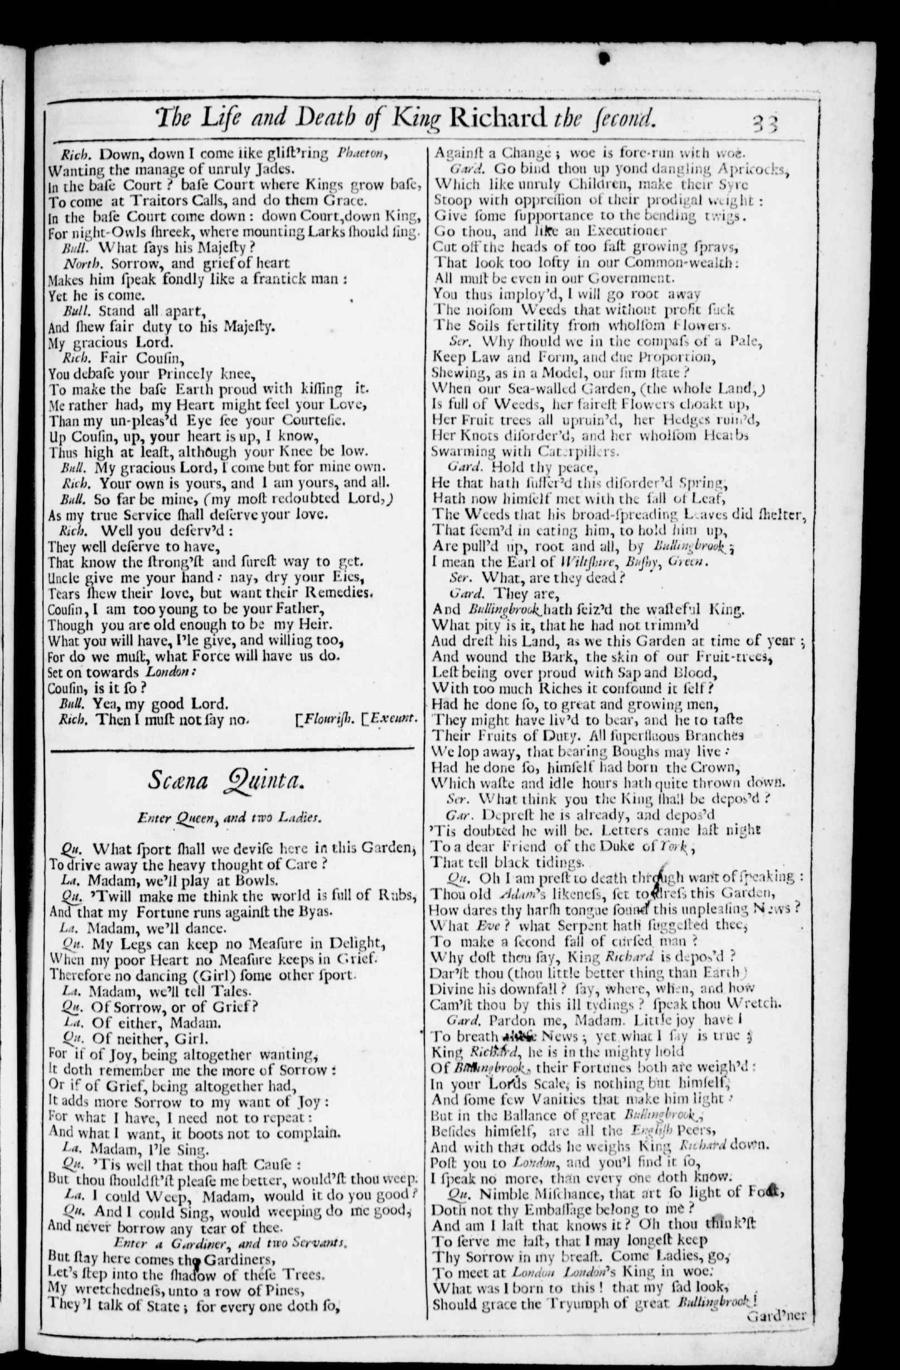 The Life and Death of King Richard the ſecond. 33
Rich. Down, down I come like gliſt'ring Phaeton,
Wanting the manage of unruly Jades.
In the baſe Court ? baſe Court where Kings grow baſe,
To come at Traitors Calls, and do them Grace.
In the baſe Court come down : down Court,down King,
For night-Owls ſhreek, where mounting Larks ſhould ſing.
Bull. What ſays his Majeſty ?
North. Sorrow, and grief of heart
Makes him ſpeak fondly like a frantick man :
Yet he is come.
Bull. Stand all apart,
And ſhew fair duty to his Majeſty.
My gracious Lord.
Rich. Fair Couſin,
You debaſe your Princely knee,
To make the baſe Earth proud with kiſſing it.
Me rather had, my Heart might feel your Love,
Than my un-pleas'd Eye ſee your Courteſie.
Up Couſin, up, your heart is up, I know,
Thus high at leaſt, although your Knee be low.
Bull. My gracious Lord, I come but for mine own.
Rich. Your own is yours, and I am yours, and all.
Bull. So far be mine, (my moſt redoubted Lord,)
As my true Service ſhall deſerve your love.
Rich. Well you deſerv'd :
They well deſerve to have,
That know the ſtrong'ſt and ſureſt way to get.
Uncle give me your hand : nay, dry your Eies,
Tears ſhew their love, but want their Remedies.
Couſin, I am too young to be your Father,
Though you are old enough to be my Heir.
What you will have, I'le give, and willing too,
For do we muſt, what Force will have us do.
Set on towards London :
Couſin, is it ſo ?
Bull. Yea, my good Lord.
Rich. Then I muſt not ſay no. [Flouriſh. [Exeunt.
Scæna Quinta.
Enter Queen, and two Ladies.
Qu. What ſport ſhall we deviſe here in this Garden,
To drive away the heavy thought of Care ?
La. Madam, we'll play at Bowls.
Qu. 'Twill make me think the world is full of Rubs,
And that my Fortune runs againſt the Byas.
La. Madam, we'll dance.
Qu. My Legs can keep no Meaſure in Delight,
When my poor Heart no Meaſure keeps in Grief.
Therefore no dancing (Girl) ſome other ſport.
La. Madam, we'll tell Tales.
Qu. Of Sorrow, or of Grief ?
La. Of either, Madam.
Qu. Of neither, Girl.
For if of Joy, being altogether wanting,
It doth remember me the more of Sorrow :
Or if of Grief, being altogether had,
It adds more Sorrow to my want of Joy :
For what I have, I need not to repeat :
And what I want, it boots not to complain.
La. Madam, I'le Sing.
Qu. 'Tis well that thou haſt Cauſe :
But thou ſhouldſt'ſt pleaſe me better, would'ſt thou weep.
La. I could Weep, Madam, would it do you good ?
Qu. And I could Sing, would weeping do me good,
And never borrow any tear of thee.
Enter a Gardiner, and two Servants.
But ſtay here comes the Gardiners,
Let's ſtep into the ſhadow of theſe Trees.
My wretchedneſs, unto a row of Pines,
They'l talk of State ; for every one doth ſo,
Againſt a Change ; woe is fore-run with woe.
Gard. Go bind thou up yond dangling Apricocks,
Which like unruly Children, make their Syre
Stoop with oppreſſion of their prodigal weight :
Give ſome ſupportance to the bending twigs.
Go thou, and like an Executioner
Cut off the heads of too faſt growing ſprays,
That look too lofty in our Common-wealth :
All muſt be even in our Government.
You thus imploy'd, I will go root away
The noiſom Weeds that without profit ſuck
The Soils fertility from wholſom Flowers.
Ser. Why ſhould we in the compaſs of a Pale,
Keep Law and Form, and due Proportion,
Shewing, as in a Model, our firm ſtate ?
When our Sea-walled Garden, (the whole Land,)
Is full of Weeds, her faireſt Flowers choakt up,
Her Fruit trees all upruin'd, her Hedges ruin'd,
Her Knots diſorder'd, and her wholſom Hearbs
Swarming with Caterpillers.
Gard. Hold thy peace,
He that hath ſuffer'd this diſorder'd Spring,
Hath now himſelf met with the fall of Leaf,
The Weeds that his broad-ſpreading Leaves did ſhelter,
That ſeem'd in eating him, to hold him up,
Are pull'd up, root and all, by Bullingbrook ;
I mean the Earl of Wiltſhire, Buſhy, Green.
Ser. What, are they dead ?
Gard. They are,
And Bullingbrook hath ſeiz'd the waſteful King.
What pity is it, that he had not trimm'd
Aud dreſt his Land, as we this Garden at time of year ;
And wound the Bark, the skin of our Fruit-trees,
Leſt being over proud with Sap and Blood,
With too much Riches it confound it ſelf ?
Had he done ſo, to great and growing men,
They might have liv'd to bear, and he to taſte
Their Fruits of Duty. All ſuperfluous Branches
We lop away, that bearing Boughs may live :
Had he done ſo, himſelf had born the Crown,
Which waſte and idle hours hath quite thrown down.
Ser. What think you the King ſhall be depos'd ?
Gar. Depreſt he is already, and depos'd
'Tis doubted he will be. Letters came laſt night
To a dear Friend of the Duke of York,
That tell black tidings.
Qu. Oh I am preſt to death through want of ſpeaking :
Thou old Adam's likeneſs, ſet to dreſs this Garden,
How dares thy harſh tongue ſound this unpleaſing News ?
What Eve ? what Serpent hath ſuggeſted thee,
To make a ſecond fall of curſed man ?
Why doſt thou ſay, King Richard is depos'd ?
Dar'ſt thou (thou little better thing than Earth)
Divine his downfall ? ſay, where, when, and how
Cam'ſt thou by this ill tydings ? ſpeak thou Wretch.
Gard. Pardon me, Madam. Little joy have I
To breath theſe News ; yet what I ſay is true ;
King Richard, he is in the mighty hold
Of Bullingbrook, their Fortunes both are weigh'd :
In your Lords Scale, is nothing but himſelf,
And ſome few Vanities that make him light :
But in the Ballance of great Bullingbrook,
Beſides himſelf, are all the Engliſh Peers,
And with that odds he weighs King Richard down.
Poſt you to London, and you'l find it ſo,
I ſpeak no more, than every one doth know.
Qu. Nimble Miſchance, that art ſo light of Foot,
Doth not thy Embaſſage belong to me ?
And am I laſt that knows it ? Oh thou think'ſt
To ſerve me laſt, that I may longeſt keep
Thy Sorrow in my breaſt. Come Ladies, go,
To meet at London London's King in woe.
What was I born to this ! that my ſad look,
Should grace the Tryumph of great Bullingbrook !
Gard'ner